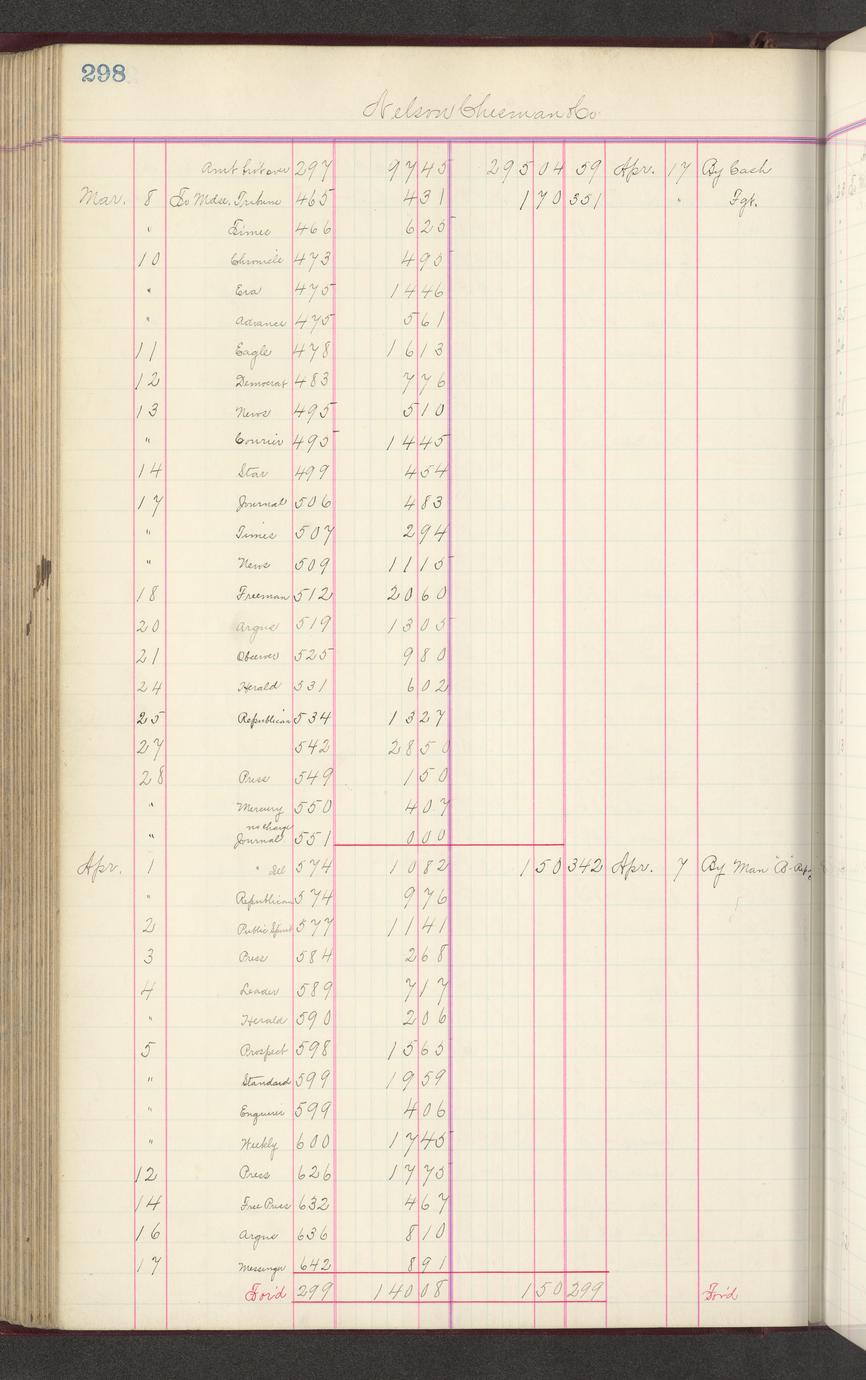 298
Nelson Chesman & Co
Amt brot over 297 97 45 295 04 59 Apr. 17 By Cash
Mar. 8 To Mdse. Tribune 465 4 31 1 70 351 " Fgt.
" Times 466 6 25
10 Chronicle 473 4 95
" Era 475 14 46
" Advance 475 5 61
11 Eagle 478 16 13
12 Democrat 483 7 76
13 News 495 5 10
" Courier 495 14 45
14 Star 499 4 54
17 Journal 506 4 83
" Times 507 2 94
" News 509 11 15
18 Freeman 512 20 60
20 Argus 519 13 05
21 Observer 525 9 80
24 Herald 531 6 02
25 Republican 534 13 27
27 542 28 50
28 Press 549 1 50
" Mercury 550 4 07
no charge
" Journal 551 0 00
Apr. 1 " 574 10 82 1 50 342 Apr. 7 By Man "B"
" Republican 574 9 76
2 Public Spirit 577 11 41
3 Press 584 2 68
4 Leader 589 7 17
" Herald 590 2 06
5 Prospect 598 15 65
" Standard 599 19 59
" Enquirer 599 4 06
" Weekly 600 17 45
12 Press 626 17 75
14 Free Press 632 4 67
16 Argus 636 8 10
17 Messenger 642 8 91
For'd 299 140 08 1 50 299 For'd